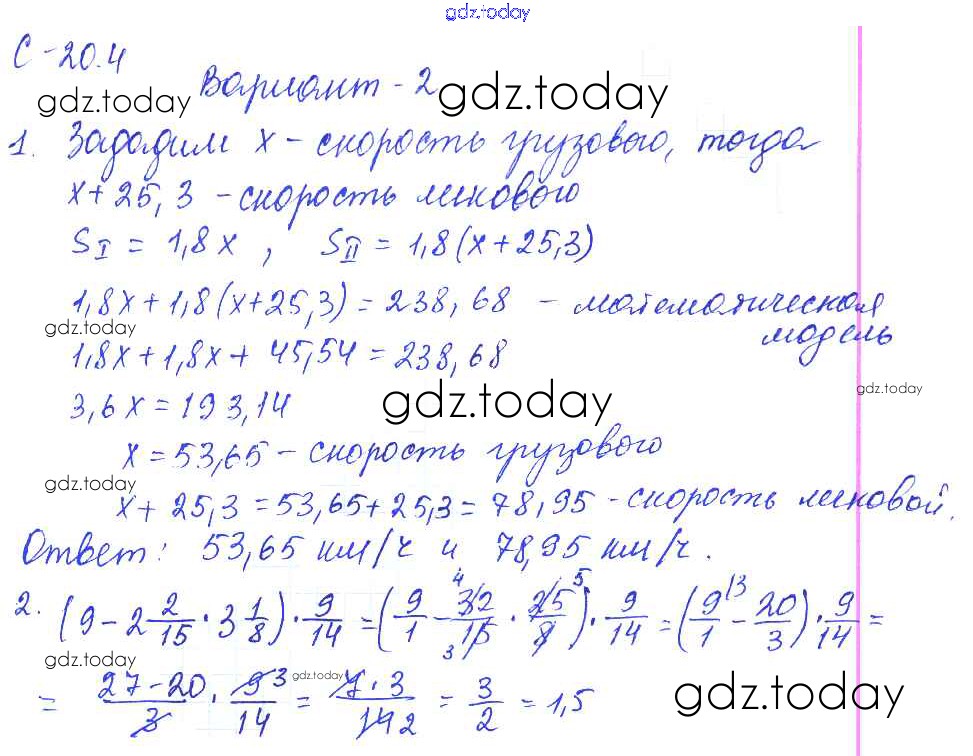 gdz.today
С-20.4
Вариант-2
gdz.today gdz.today
1. Зададим x - скорость грузового, тогда
x+25,3 - скорость легкового
S_I = 1,8x, S_II = 1,8(x+25,3)
1,8x+1,8(x+25,3)=238,68 - математическая модель
gdz.today
1,8x+1,8x+45,54=238,68
3,6x=193,14
gdz.today gdz.today
x=53,65 - скорость грузового
gdz.today
x+25,3=53,65+25,3=78,95 - скорость легковой.
Ответ: 53,65 км/ч и 78,95 км/ч.
2. (9-2 2/15 · 3 1/8) · 9/14 = (9/1 - 32/15 · 25/8) · 9/14 = (9/1 - 20/3) · 9/14 =
gdz.today
= 27-20/3 · 9/14 = 7·3/14 2 = 3/2 = 1,5
gdz.today gdz.today